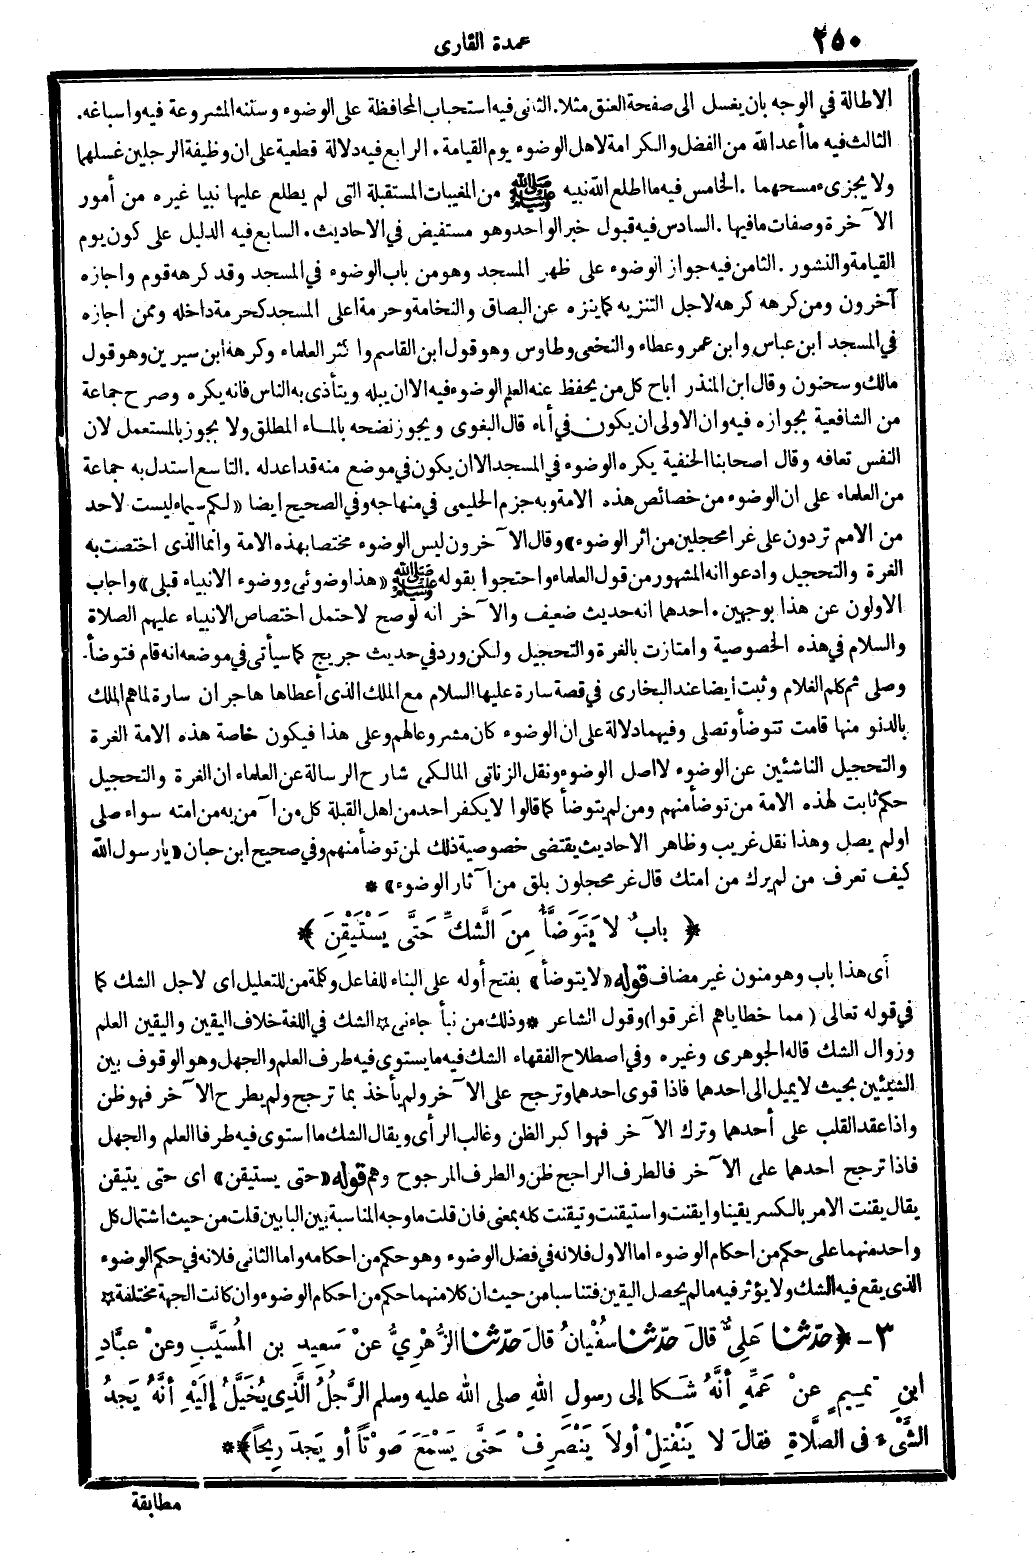 ٢٥٠
عمدة القارى
الاطالة في الوجه بان يغسل الى صفحة العنق مثلا. الثانى فيه استحباب المحافظة على الوضوء وسننه المشروعة فيه واسباغه.
الثالث فيه ما أعد الله من الفضل والكرامة لاهل الوضوء يوم القيامة. الرابع فيه دلالة قطعية على ان وظيفة الرجلين غسلهما
ولا يجزىء مسحهما. الخامس فيه ما اطلع الله نبيه ﷺ من المغيبات المستقبلة التى لم يطلع عليها نبيا غيره من أمور
الآخرة وصفات ما فيها. السادس فيه قبول خبر الواحد وهو مستفيض في الاحاديث. السابع فيه الدليل على كون يوم
القيامة والنشور. الثامن فيه جواز الوضوء على ظهر المسجد وهو من باب الوضوء في المسجد وقد كرهه قوم واجازه
آخرون ومن كرهه كرهه لاجل التنزيه كما ينزه عن البصاق والنخامة وحرمة اعلى المسجد كحرمة داخله وممن اجازه
في المسجد ابن عباس وابن عمر وعطاء والنخعى وطاوس وهو قول ابن القاسم واكثر العلماء وكرهه ابن سيرين وهو قول
مالك وسحنون وقال ابن المنذر اباح كل من يحفظ عنه العلم الوضوء فيه الا ان يبله ويتأذى به الناس فانه يكره وصرح جماعة
من الشافعية بجوازه فيه وان الاولى ان يكون في أناء قال البغوى ويجوز نضحه بالماء المطلق ولا يجوز بالمستعمل لان
النفس تعافه وقال اصحابنا الحنفية يكره الوضوء في المسجد الا ان يكون في موضع منه قد اعد له. التاسع استدل به جماعة
من العلماء على ان الوضوء من خصائص هذه الامة وبه جزم الحليمى في منهاجه وفي الصحيح ايضا «لكم سيماء ليست لاحد
من الامم تردون على غرا محجلين من اثر الوضوء» وقال الآخرون ليس الوضوء مختصا بهذه الامة وانما الذى اختصت به
الغرة والتحجيل وادعوا انه المشهور من قول العلماء واحتجوا بقوله ﷺ «هذا وضوئى ووضوء الانبياء قبلى» واجاب
الاولون عن هذا بوجهين. احدهما انه حديث ضعيف والآخر انه لو صح لاحتمل اختصاص الانبياء عليهم الصلاة
والسلام في هذه الخصوصية وامتازت بالغرة والتحجيل ولكن ورد في حديث جريج كما سيأتى في موضعه انه قام فتوضأ
وصلى ثم كلم الغلام وثبت أيضا عند البخارى في قصة سارة عليها السلام مع الملك الذى أعطاها هاجر ان سارة لما هم الملك
بالدنو منها قامت تتوضأ وتصلى وفيهما دلالة على ان الوضوء كان مشروعا لهم وعلى هذا فيكون خاصة هذه الامة الغرة
والتحجيل الناشئين عن الوضوء لا اصل الوضوء ونقل الزناتى المالكى شارح الرسالة عن العلماء ان الغرة والتحجيل
حكم ثابت لهذه الامة من توضأ منهم ومن لم يتوضأ كما قالوا لا يكفر احد من اهل القبلة كل من آمن به من امته سواء صلى
او لم يصل وهذا نقل غريب وظاهر الاحاديث يقتضى خصوصية ذلك لمن توضأ منهم وفي صحيح ابن حبان «يا رسول الله
كيف تعرف من لم يرك من امتك قال غر محجلون بلق من آثار الوضوء» *
﴿ بابٌ لا يَتَوَضَّأُ مِنَ الشَّكِّ حَتَّى يَسْتَيْقِنَ ﴾
أى هذا باب وهو منون غير مضاف قوله «لا يتوضأ» بفتح أوله على البناء للفاعل وكلمة من للتعليل اى لاجل الشك كما
في قوله تعالى (مما خطاياهم اغرقوا) وقول الشاعر * وذلك من نبأ جاءنى * الشك في اللغة خلاف اليقين واليقين العلم
وزوال الشك قاله الجوهرى وغيره وفي اصطلاح الفقهاء الشك فيه ما يستوى فيه طرف العلم والجهل وهو الوقوف بين
الشيئين بحيث لا يميل الى احدهما فاذا قوى احدهما وترجح على الآخر ولم يأخذ بما ترجح ولم يطرح الآخر فهو ظن
واذا عقد القلب على أحدهما وترك الآخر فهو اكبر الظن وغالب الرأى ويقال الشك ما استوى فيه طرفا العلم والجهل
فاذا ترجح احدهما على الآخر فالطرف الراجح ظن والطرف المرجوح وهم قوله «حتى يستيقن» اى حتى يتيقن
يقال يقنت الامر بالكسر يقينا وايقنت واستيقنت وتيقنت كله بمعنى فان قلت ما وجه المناسبة بين البابين قلت من حيث اشتمال كل
واحد منهما على حكم من احكام الوضوء اما الاول فلانه في فضل الوضوء وهو حكم من احكامه واما الثانى فلانه في حكم الوضوء
الذى يقع فيه الشك ولا يؤثر فيه ما لم يحصل اليقين فتناسبا من حيث ان كلا منهما حكم من احكام الوضوء وان كانت الجهة مختلفة *
٣ - ﴿ حدّثنا عَلِيٌّ قالَ حدّثنا سُفْيانُ قالَ حدّثنا الزُّهْرِيُّ عنْ سَعِيدِ بن المُسَيَّبِ وعنْ عبَّادِ
ابنِ تميمٍ عنْ عَمِّهِ أنَّهُ شَكا إلى رسولِ اللهِ صلى الله عليه وسلم الرَّجُلُ الَّذِى يُخَيَّلُ إلَيْهِ أنَّهُ يَجِدُ
الشَّىْءَ فى الصَّلاةِ فقالَ لا يَنْفَتِلْ أوْ لا يَنْصَرِفْ حَتَّى يَسْمَعَ صَوْتاً أو يَجِدَ رِيحاً ﴾ **
مطابقة